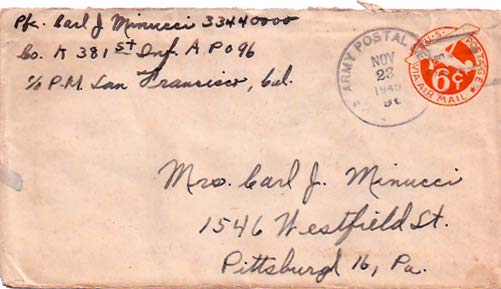 Pfc. Carl J Minucci 33440000
Co. K 381st Inf. A P O 96
c/o P.M. San Francisco, Cal.
ARMY POSTAL
NOV
23
POSTAGE
6¢
VIA AIR MAIL
Mrs. Carl J. Minucci
1546 Westfield St.
Pittsburgh 16, Pa.